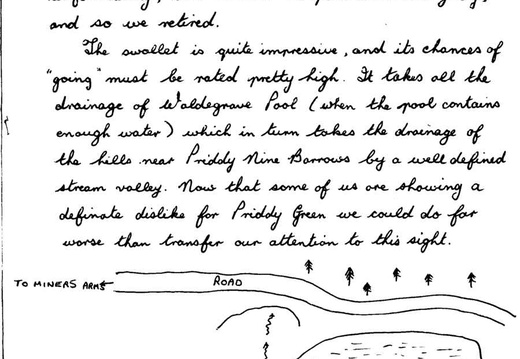 and so we retired.
The swallet is quite impressive, and its chances of
"going" must be rated pretty high. It takes all the
drainage of Waldegrave Pool (when the pool contains
enough water) which in turn takes the drainage of
the hills near Priddy Nine Barrows by a well defined
stream valley. Now that some of us are showing a
definate dislike for Priddy Green we could do far
worse than transfer our attention to this sight.
TO MINERS ARMS
ROAD